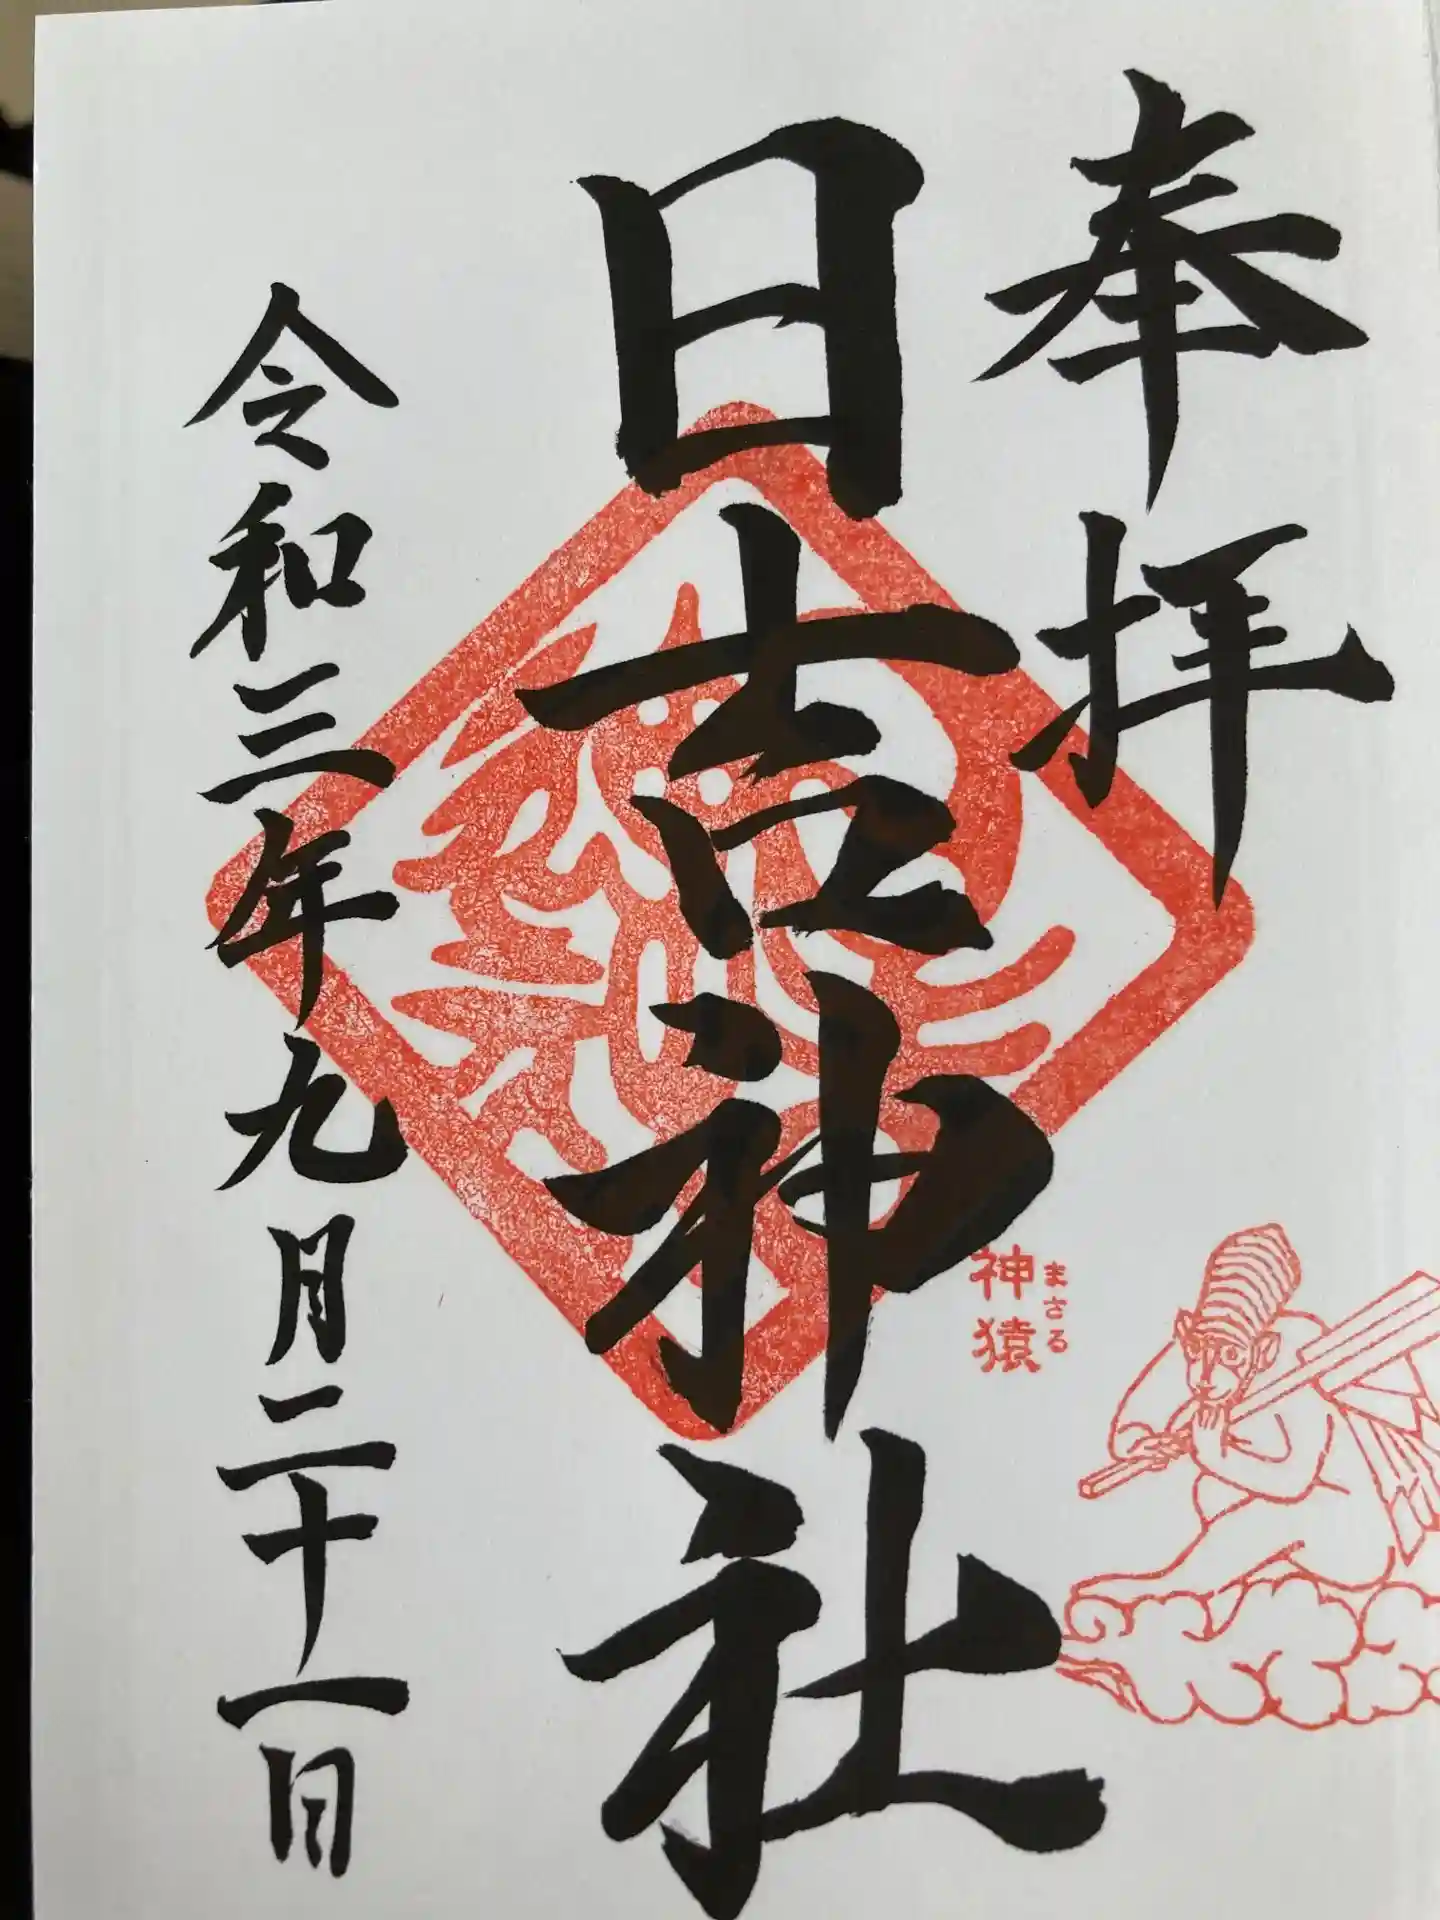 奉拝
日吉神社
神猿
まさる
令和三年九月二十一日